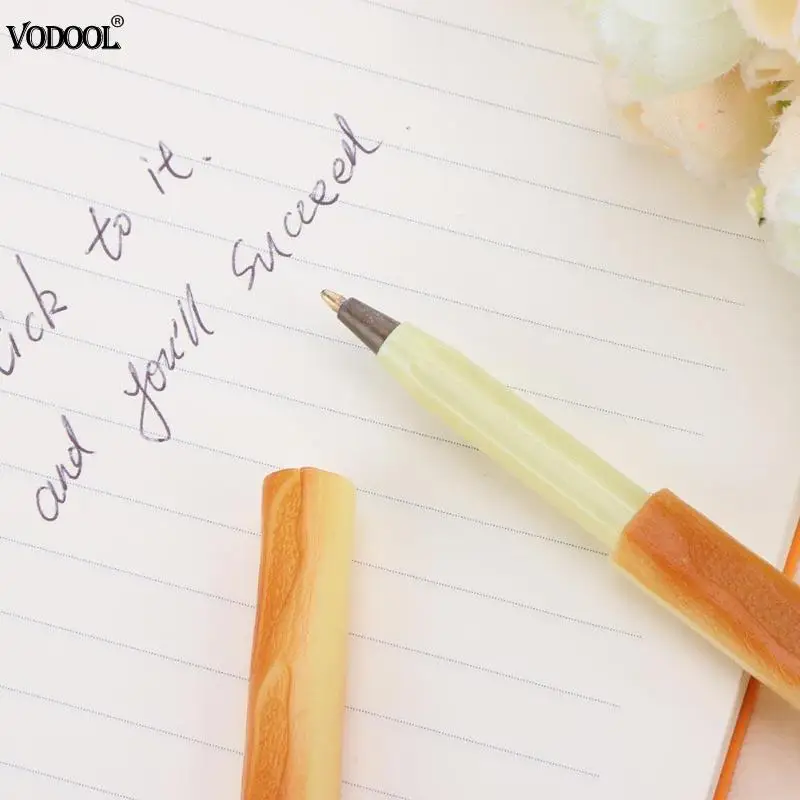 VODOOL®
ick to it.
and you'll succeed.